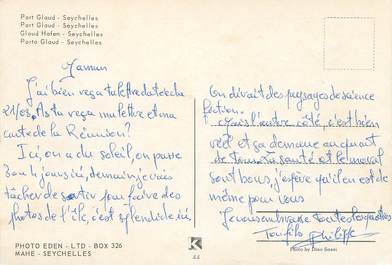 Port Glaud - Seychelles
Port Glaud - Seychelles
Glaud Hafen - Seychelles
Porto Glaud - Seychelles
Maman
J'ai bien reçu ta lettre datée du
21/05. As tu reçu ma lettre et ma
carte de la Réunion?
Ici, on a du soleil, on passe
4 jours ici, demain je vais
tâcher de sortir pour faire des
photos de l'île, c'est splendide ici,
PHOTO EDEN - LTD - BOX 326
MAHE - SEYCHELLES
On dirait des paysages de science
fiction.
Mais l'autre côté, c'est bien
réel et ça demeure
santé et le moral
sont bons, j'espère qu'il en est de
même pour vous
Je vous embrasse toutes les quatres
Ton fils Philippe
Photo by Dino Sassi
K
44